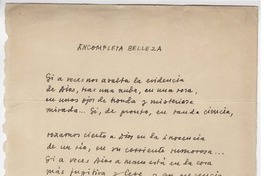 INCOMPLETA BELLEZA
Si a veces nos asalta la evidencia
de Dios, tras una nube, en una rosa,
en unos ojos de honda y misteriosa
mirada... Si, de pronto, en ruda ciencia,
rozamos cierto a Dios en la inocencia
de un río, en su corriente rumorosa...
Si a veces Dios a team está en la cosa
más fugitiva y leve